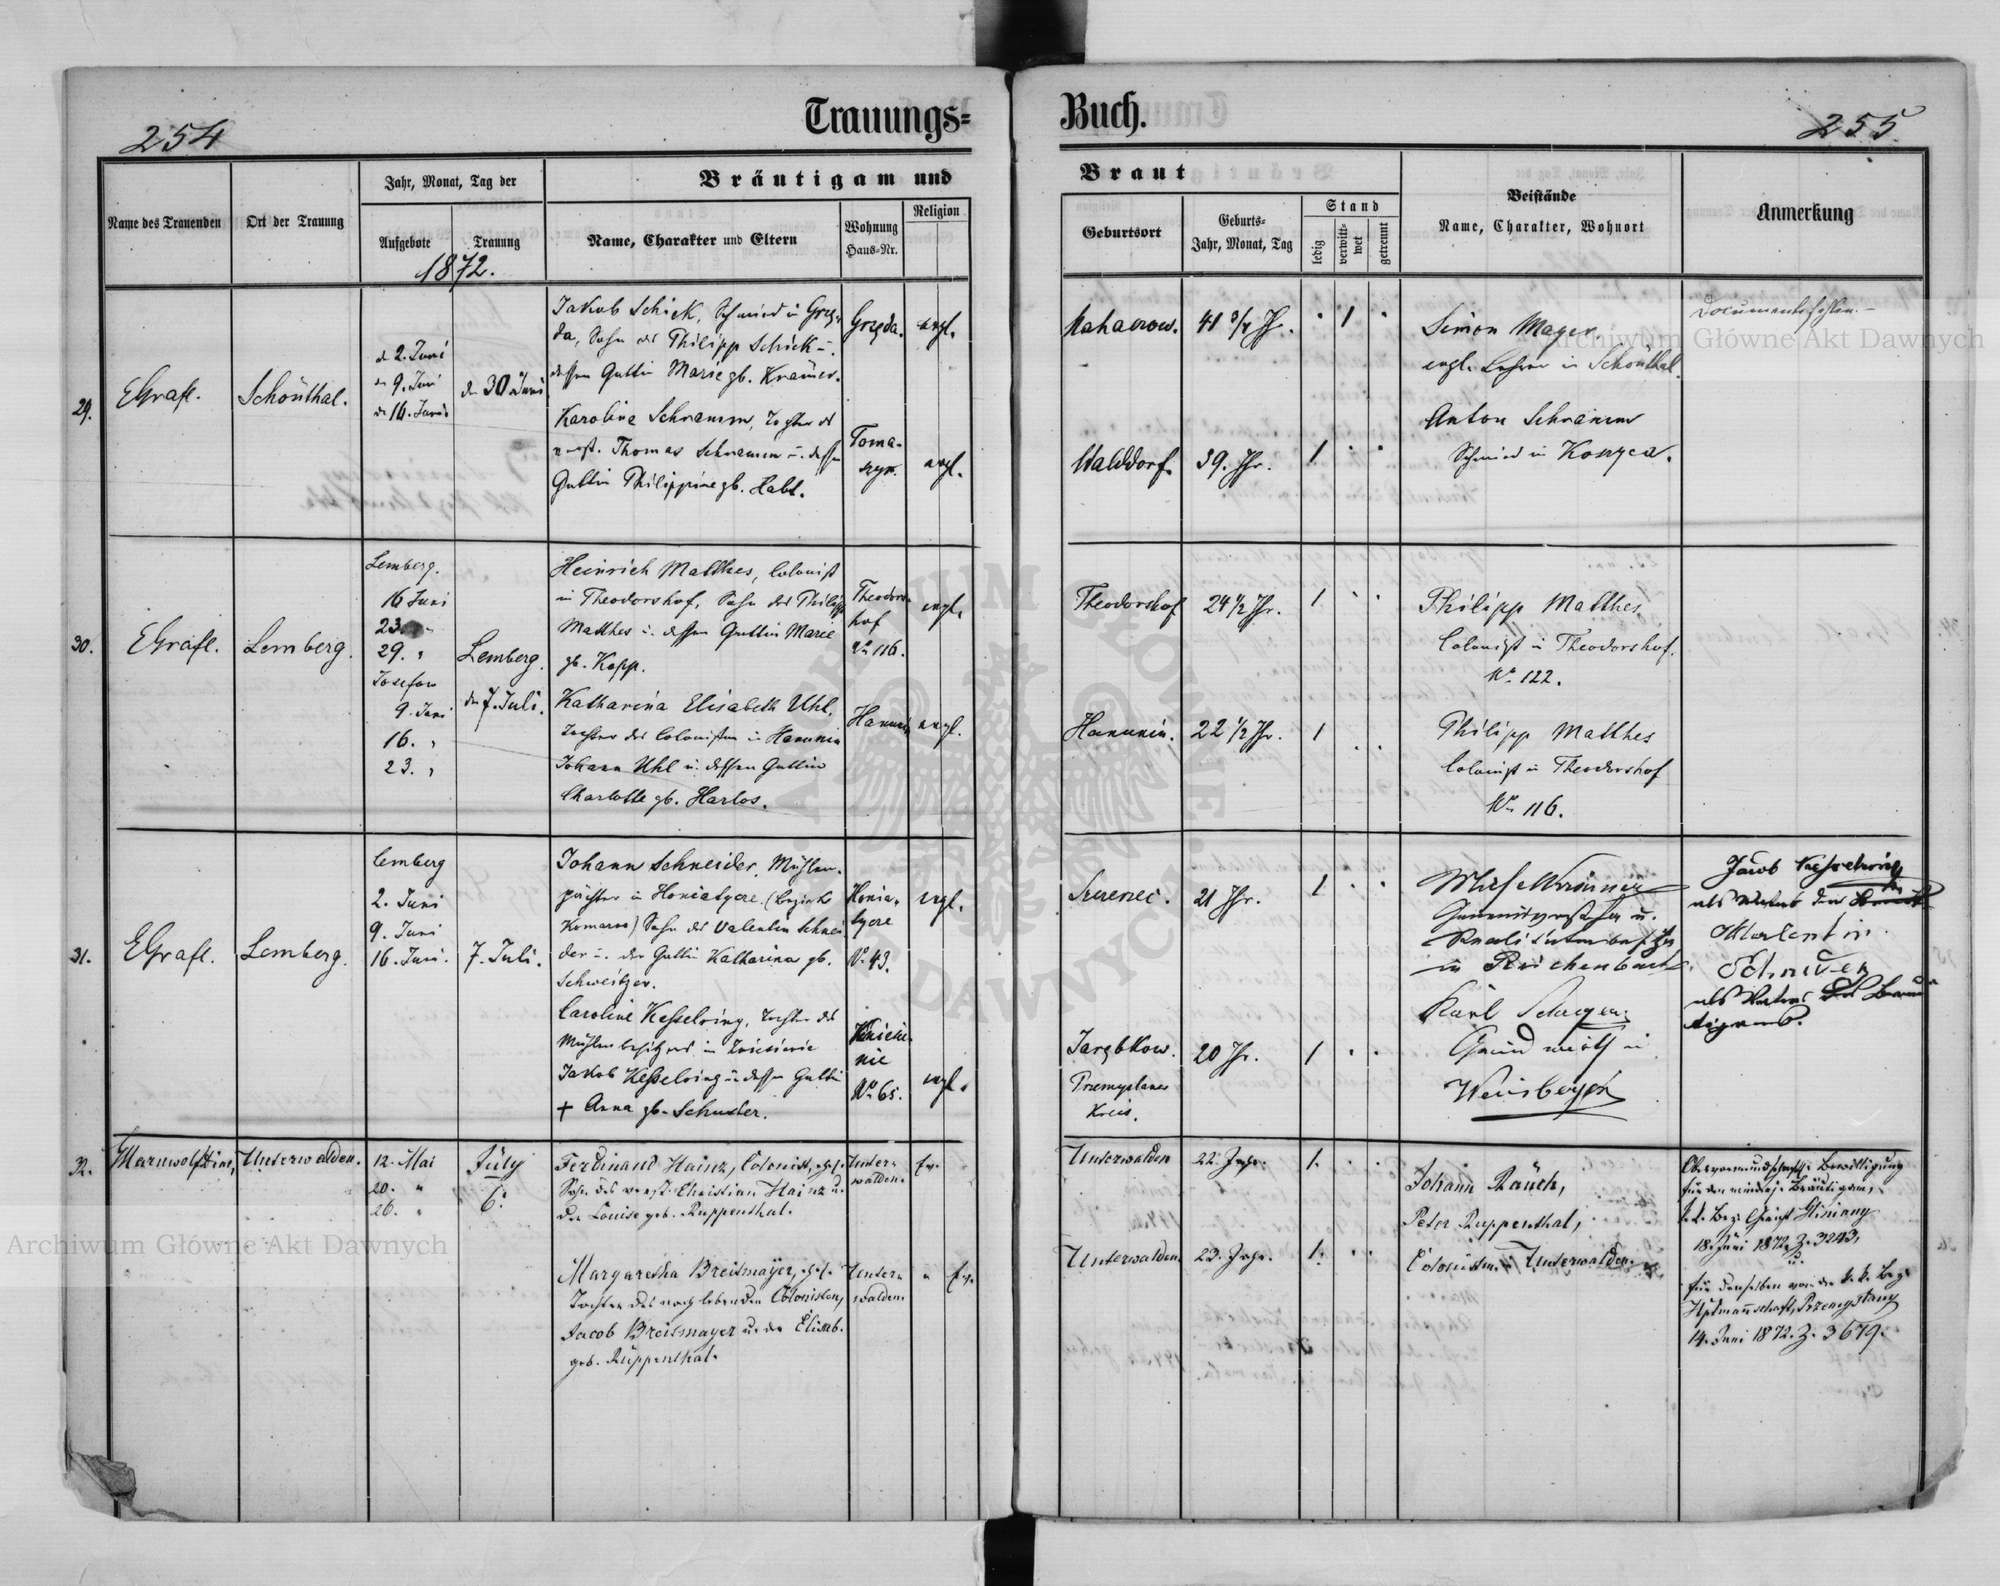 254
Trauungs=
Name des Trauenden
Ort der Trauung
Jahr, Monat, Tag der
Aufgebote
Trauung
1872.
Bräutigam und
Name, Charakter und Eltern
Wohnung
Haus=Nr.
Religion
29.
EGrafl.
Schönthal.
d. 2. Juni
d. 9. Juni
d. 16. Juni
den 30 Juni
Jakob Schick, Schmied in Grzę-
da, Sohn des Philipp Schick u.
dessen Gattin Marie gb. Krämer.
Grzęda.
evgl.
Karolina Schramm, Tochter des
verst. Thomas Schramm u. dessen
Gattin Philippine gb. Habt.
Toma-
szyn.
evgl.
30.
EGrafl.
Lemberg.
Lemberg.
16 Juni
23. "
29. "
Josefow
9. Juni
16. "
23. "
Lemberg.
den 7. Juli.
Heinrich Matthes, Colonist
in Theodorshof, Sohn des Philipp
Matthes u. dessen Gattin Marie
gb. Kopp.
Theodors-
hof
No 116.
evgl.
Katharina Elisabeth Uhl,
Tochter des Colonisten in Hanunin
Johann Uhl u. dessen Gattin
Charlotte gb. Harlos.
Hanunin
evgl.
31.
EGrafl.
Lemberg.
Lemberg
2. Juni
9. Juni
16. Juni.
7. Juli.
Johann Schneider, Mühlen-
pächter in Honiatycze (Bezirk
Komarno) Sohn des Valentin Schnei
der u. der Gattin Katharina gb.
Schweitzer.
Honia-
tycze
No 43.
evgl.
Caroline Kesselring, Tochter des
Mühlenbesitzers in
Jakob Kesselring u. dessen Gattin
+ Anna gb. Schuster.
No 65.
evgl.
32.
Marnwolf
Unterwalden.
12. Mai
20. "
26. "
July
6.
Ferdinand Hainz, Colonist, ehel.
Sohn des verst. Christian Hainz u.
der Louise geb. Ruppenthal.
Unter-
walden.
Margaretha Breitmayer, ehel.
Tochter des noch lebenden Colonisten,
Jacob Breitmayer u. der Elisab.
geb. Ruppenthal.
Unter-
walden
Buch.
255
Braut
Geburtsort
Geburts=
Jahr, Monat, Tag
Stand
ledig
verwitt=
wet
getrennt
Beistände
Name, Charakter, Wohnort
Anmerkung
Mahaerow.
41 3/4 Jh.
1
Simon Mayer,
evgl. Lehrer in Schönthal.
Walddorf.
39. Jhr.
1
Anton Schramm
Schmied in Konyca.
Theodorshof
24 1/2 Jhr.
1
Philipp Matthes,
Colonist in Theodorshof.
No 122.
Hanunin.
22 1/2 Jhr.
1
Philipp Matthes
Colonist in Theodorshof
No 116.
21 Jhr.
1
Gemeindevorsteher u.
Realitätenbesitzer
in Reichenbach.
Jacob Kesselring
als Vater der Braut
Schneider
als Vater des Bräu
tigams.
20 Jhr.
1
Przemyslaner
Kreis.
Karl
Grundwirth in
Weinbergen
Unterwalden
22. Jahr.
1.
Johann Rauch,
Peter Ruppenthal,
Colonisten in Unterwalden.
Unterwalden.
23. Jahr.
1.
Obervormundschaftl. Bewilligung
für den minderj. Bräutigam,
k. k. Bez. Gericht Gliniany
18. Juni 1872. Z. 3243,
u.
für denselben von der k. k. Bez.
Hptmannschaft, Przemyslany
14. Juni 1872. Z. 3679.
Archiwum Główne Akt Dawnych
Archiwum Główne Akt Dawnych
ARCHIWUM GŁÓWNE AKT DAWNYCH